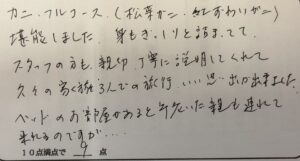 カニ・フルコース、(松葉ガニ・紅ずわいガニ)
堪能しました 身もぎっしりと詰まってて
スタッフの方も、親切、丁寧に説明してくれて
久々の家族3人での旅行、いい思い出が出来ました。
ベッドのお部屋があると年老いた親も連れて
来れるのですが・・・
10点満点で 9 点